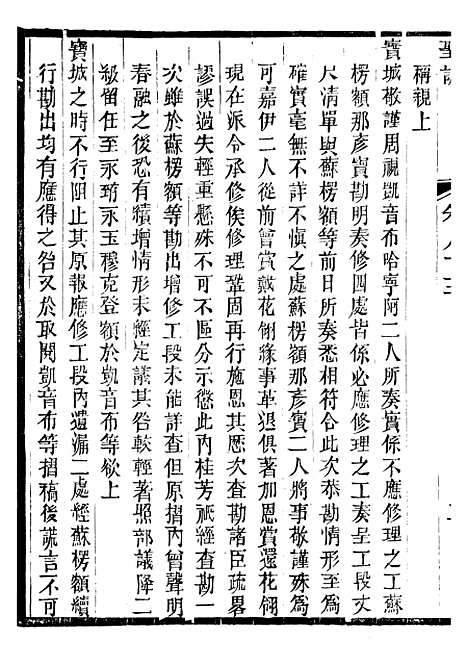 聖訓
稱親上
寶城敬謹周視凱音布哈寧阿二人所奏實係不應修理之工蘇
楞額那彥寶勘明奏修四處皆係必應修理之工奏呈工段丈
尺清單與蘇楞額等前日所奏悉相符合此次恭勘情形至爲
確實毫無不詳不慎之處蘇楞額那彥寶二人將事敬謹殊爲
可嘉伊二人從前曾賞戴花翎緣事革退俱著加恩賞還花翎
現在派令承修俟修理鞏固再行施恩其歷次查勘諸臣疏畧
謬誤過失輕重懸殊不可不區分示懲此內桂芳祇經查勘一
次雖於蘇楞額等勘出增修工段未能詳查但原摺內曾聲明
春融之後恐有續增情形未經定議其咎較輕著照部議降二
級留任至永玉穆克登額於凱音布等欲上
寶城之時不行阻止其原報應修工段內遺漏二處經蘇楞額續
行勘出均有應得之咎又於取閱凱音布等摺稿後謊言不可